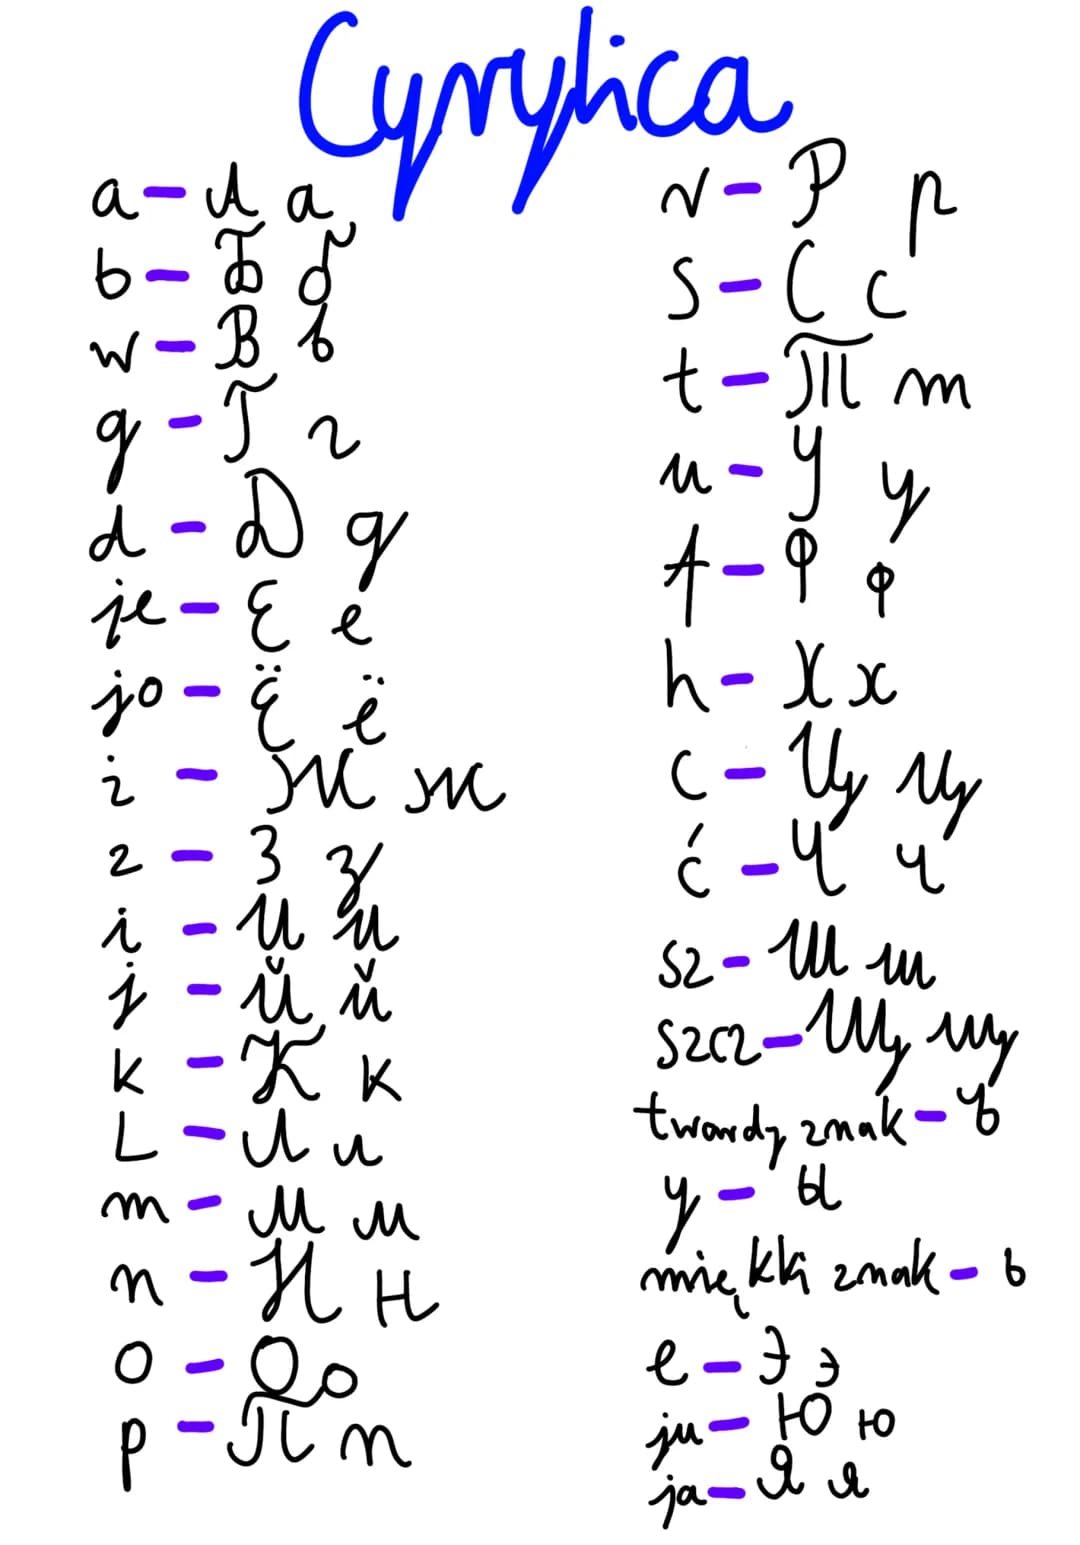 Cyrylica
a - А а
b - Б б
w - В в
g - Г г
d - Д д
je - Е е
jo - Ё ё
ż - Ж ж
z - З з
i - И и
j - Й й
k - К к
L - Л л
m - М м
n - Н н
o - О о
p - П п
r - Р р
s - С с
t - Т т
u - У у
f - Ф ф
h - Х х
c - Ц ц
ć - Ч ч
sz - Ш ш
szcz - Щ щ
twardy znak - ъ
y - ы
miękki znak - ь
e - Э э
ju - Ю ю
ja - Я я